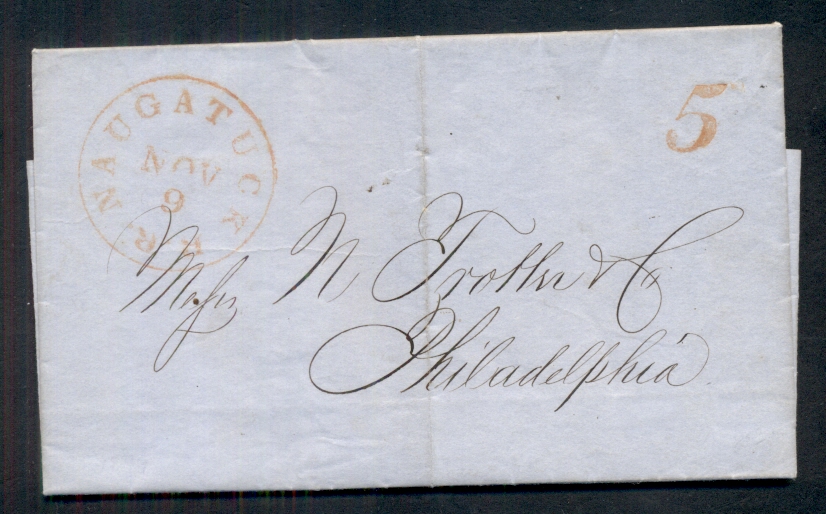 NAUGATUCK R. R.
NOV
9
5
Messrs N Trotter & Co
Philadelphia